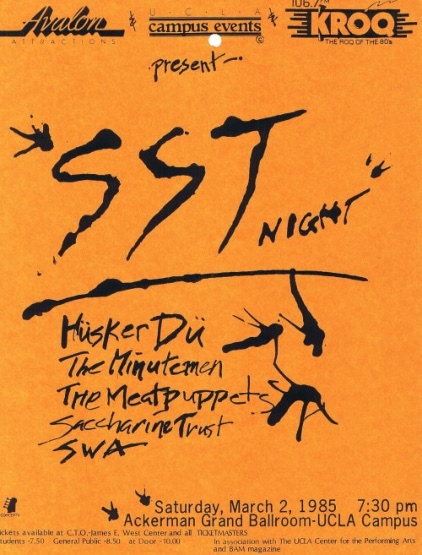 Avalon
ATTRACTIONS
&
U·C·L·A
campus events
&
106.7
KROQ
THE ROQ OF THE 80s
present—
"SST
NIGHT"
Hüsker Dü
The Minutemen
The Meatpuppets
Saccharine Trust
SWA
Saturday, March 2, 1985 7:30 pm
Ackerman Grand Ballroom-UCLA Campus
ickets available at C.T.O.-James E. West Center and all TICKETMASTERS
tudents -7.50 General Public -8.50 at Door -10.00
In association with The UCLA Center for the Performing Arts
and BAM magazine